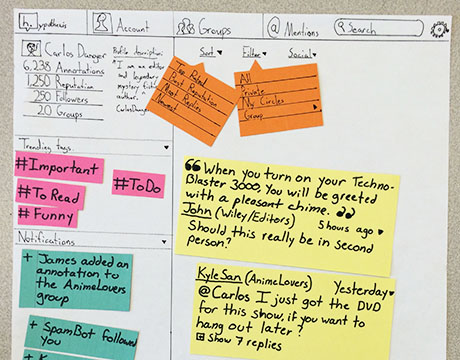 h. ypothesis
Account
Groups
@ Mentions
Search
Carlos Danger
6,238 Annotations
1,250 Reputation
250 Followers
20 Groups
Profile description:
"I am an editor
and legendary
mystery fiction
author.
CarlosDanger
Sort
Top Rated
Best Reputation
Most Replies
Newest
Filter
All
Private
My Circles
Group
Social
Trending tags
#Important
#To Read
#ToDo
#Funny
Notifications
+ James added an
annotation to
the AnimeLovers
group
+ SpamBot followed
you
When you turn on your Techno-
Blaster 3000, You will be greeted
with a pleasant chime.
John (Wiley/Editors) 5 hours ago
Should this really be in second
person?
KyleSan (AnimeLovers) Yesterday
@Carlos I just got the DVD
for this show, if you want to
hang out later?
Show 7 replies